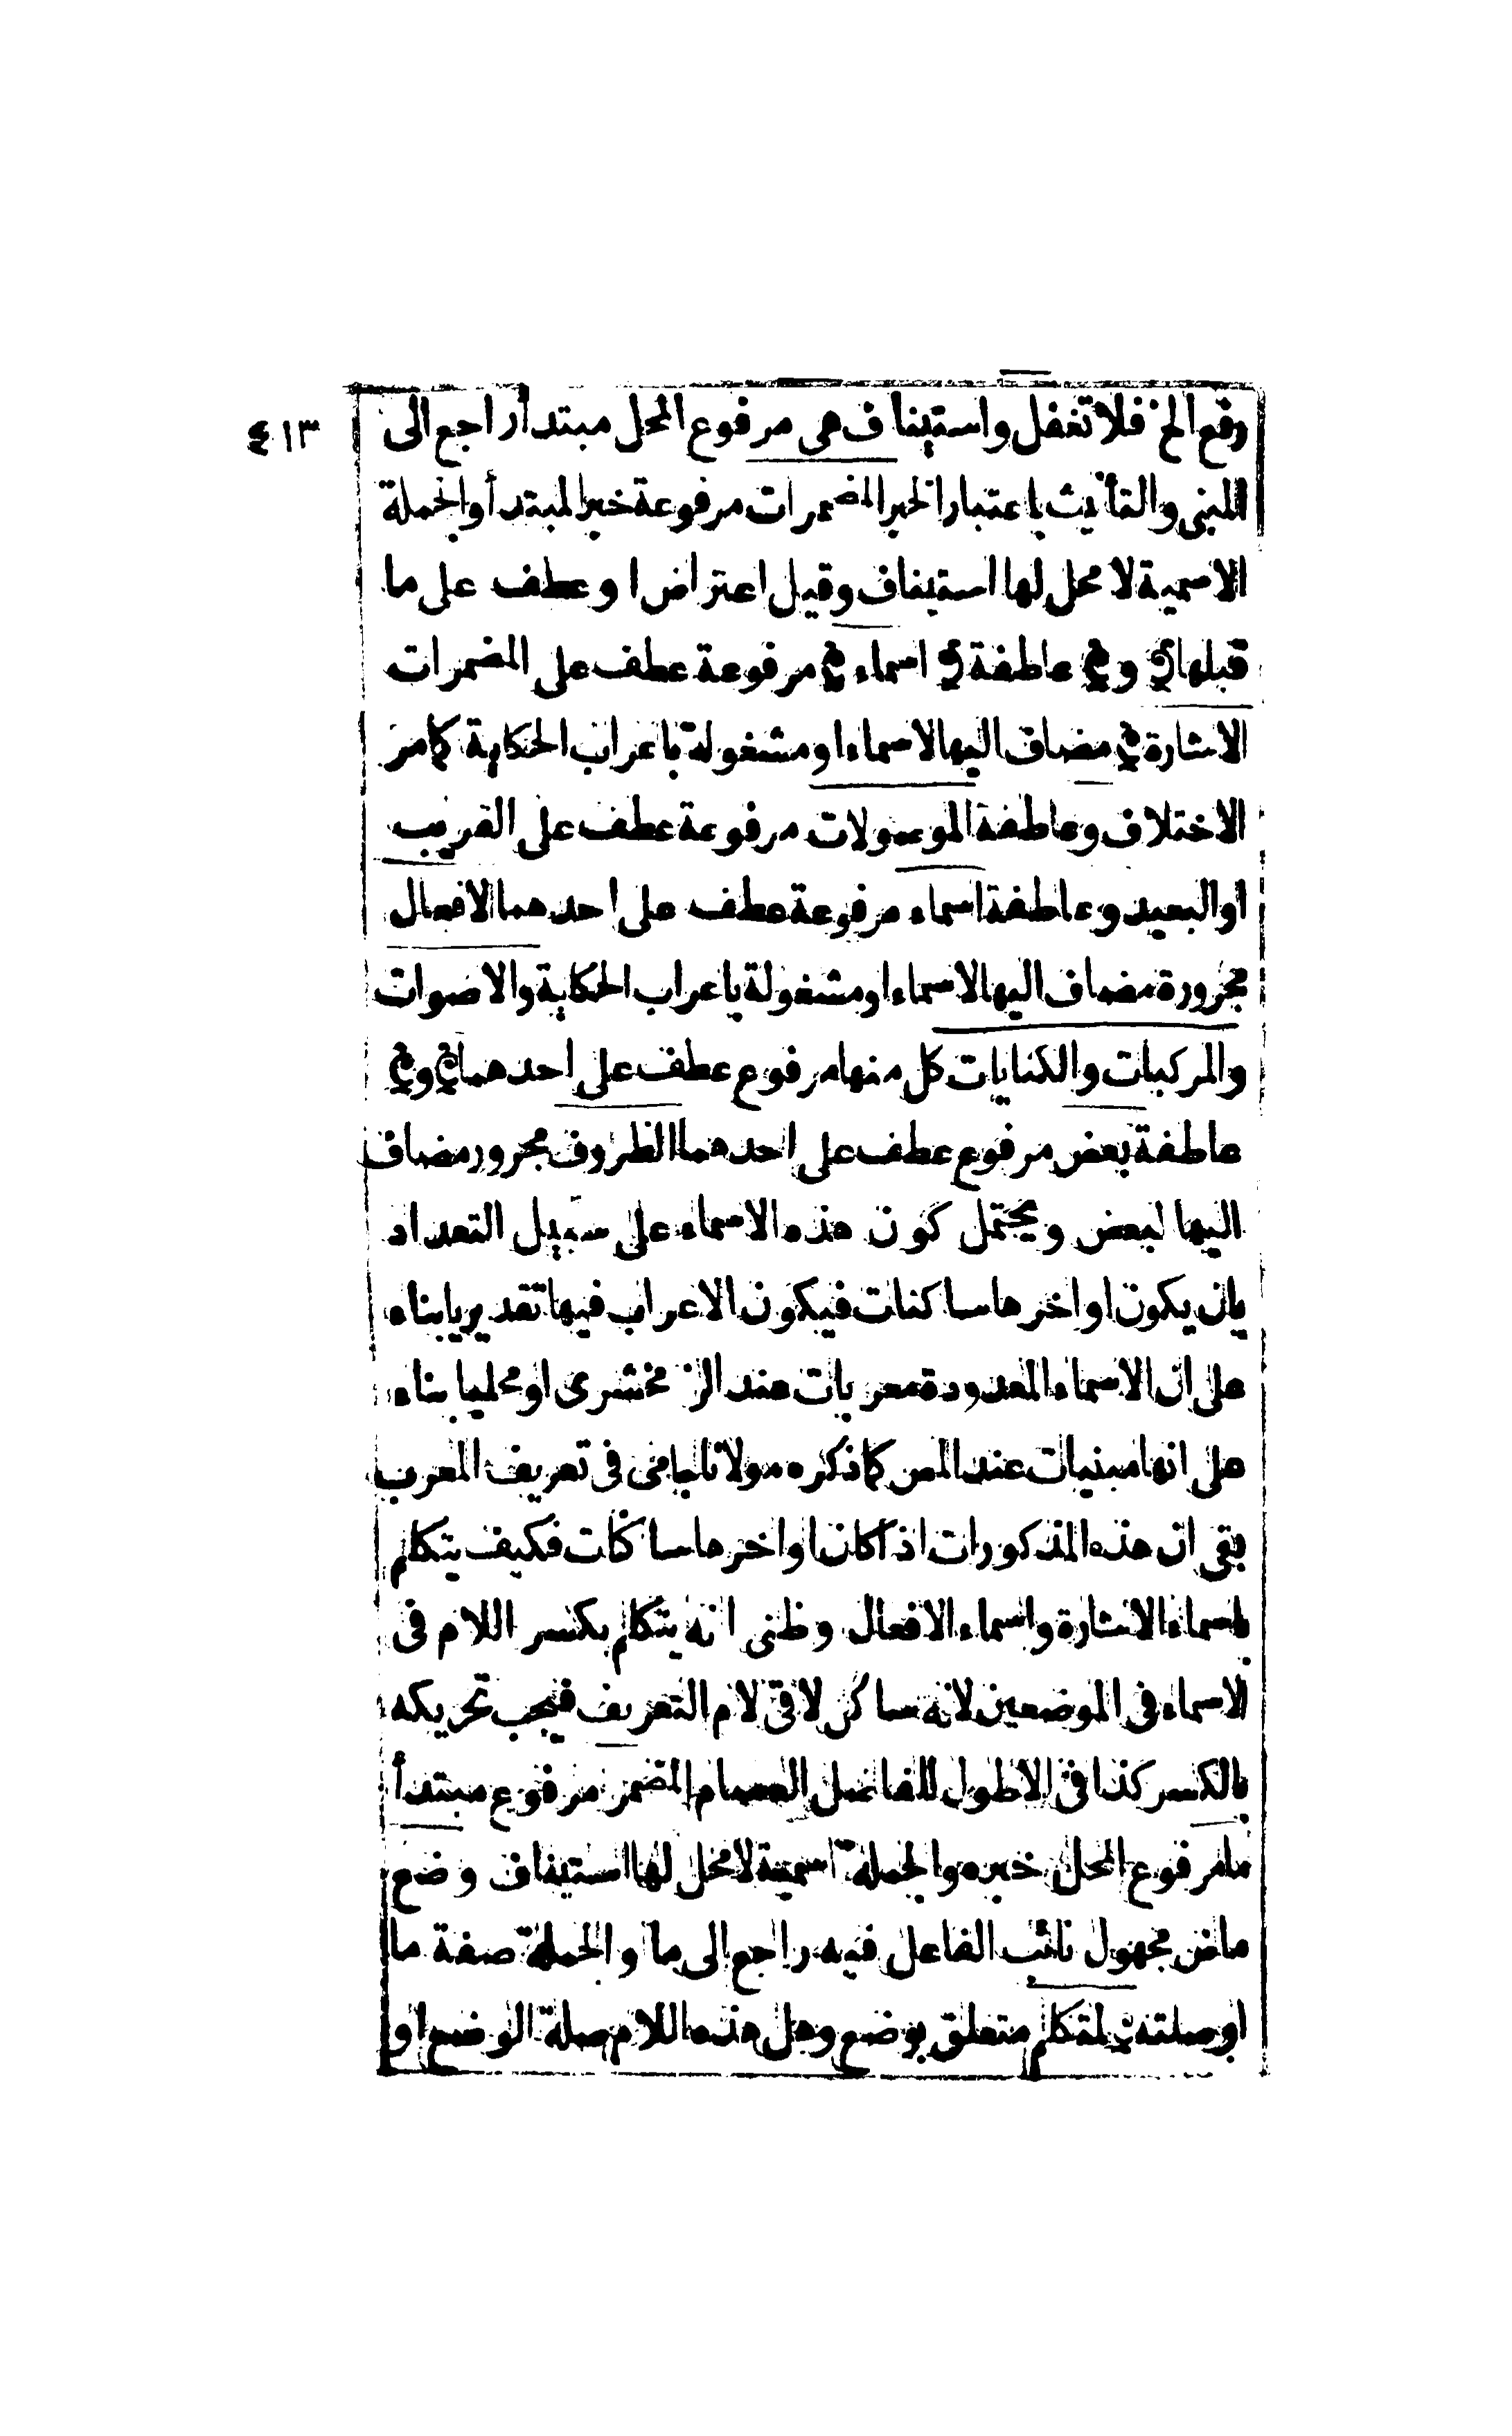 ٤١٣
وقع الخ فلا تغفل و استيناف هى مرفوع المحل مبتدأ راجع الى
المبنى والتأنيث باعتبار الخبر المضمرات مرفوعة خبر المبتدأ والجملة
الاسمية لا محل لها استيناف وقيل اعتراض او عطف على ما
قبلها و عاطفة اسماء مرفوعة عطف على المضمرات
الاشارة مضاف اليها لاسماء او مشغولة باعراب الحكاية كما مر
الاختلاف وعاطفة الموصولات مرفوعة عطف على القريب
او البعيد و عاطفة اسماء مرفوعة عطف على احدهما الافعال
مجرورة مضاف اليها لاسماء او مشغولة باعراب الحكاية والاصوات
والمركبات والكنايات كل منها مرفوع عطف على احدهما و
عاطفة بعض مرفوع عطف على احدهما الظروف مجرور مضاف
اليها لبعض ويحتمل كون هذه الاسماء على سبيل التعداد
بان يكون اواخرها ساكنات فيكون الاعراب فيها تقديريا بناء
على ان الاسماء المعدودة معربات عند الزمخشرى او محليا بناء
على انها مبنيات عند المص كما ذكره مولانا جامى فى تعريف المعرب
بقى ان هذه المذكورات اذا كان اواخرها ساكنات فكيف يتكلم
باسماء الاشارة واسماء الافعال وظنى انه يتكلم بكسر اللام فى
الاسماء فى الموضعين لانه ساكن لاقى لام التعريف فيجب تحريكه
بالكسر كذا فى الاطول للفاضل العصام المضمر مرفوع مبتدأ
ما مرفوع المحل خبره والجملة اسمية لا محل لها استيناف وضع
ماض مجهول نائب الفاعل فيه راجع الى ما والجملة صفة ما
او صلته لمتكلم متعلق بوضع وهل هذه اللام صلة الوضع او